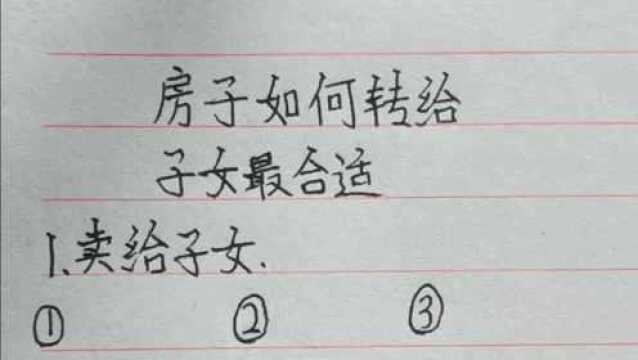 房子如何转给
子女最合适
1.卖给子女.
① ② ③